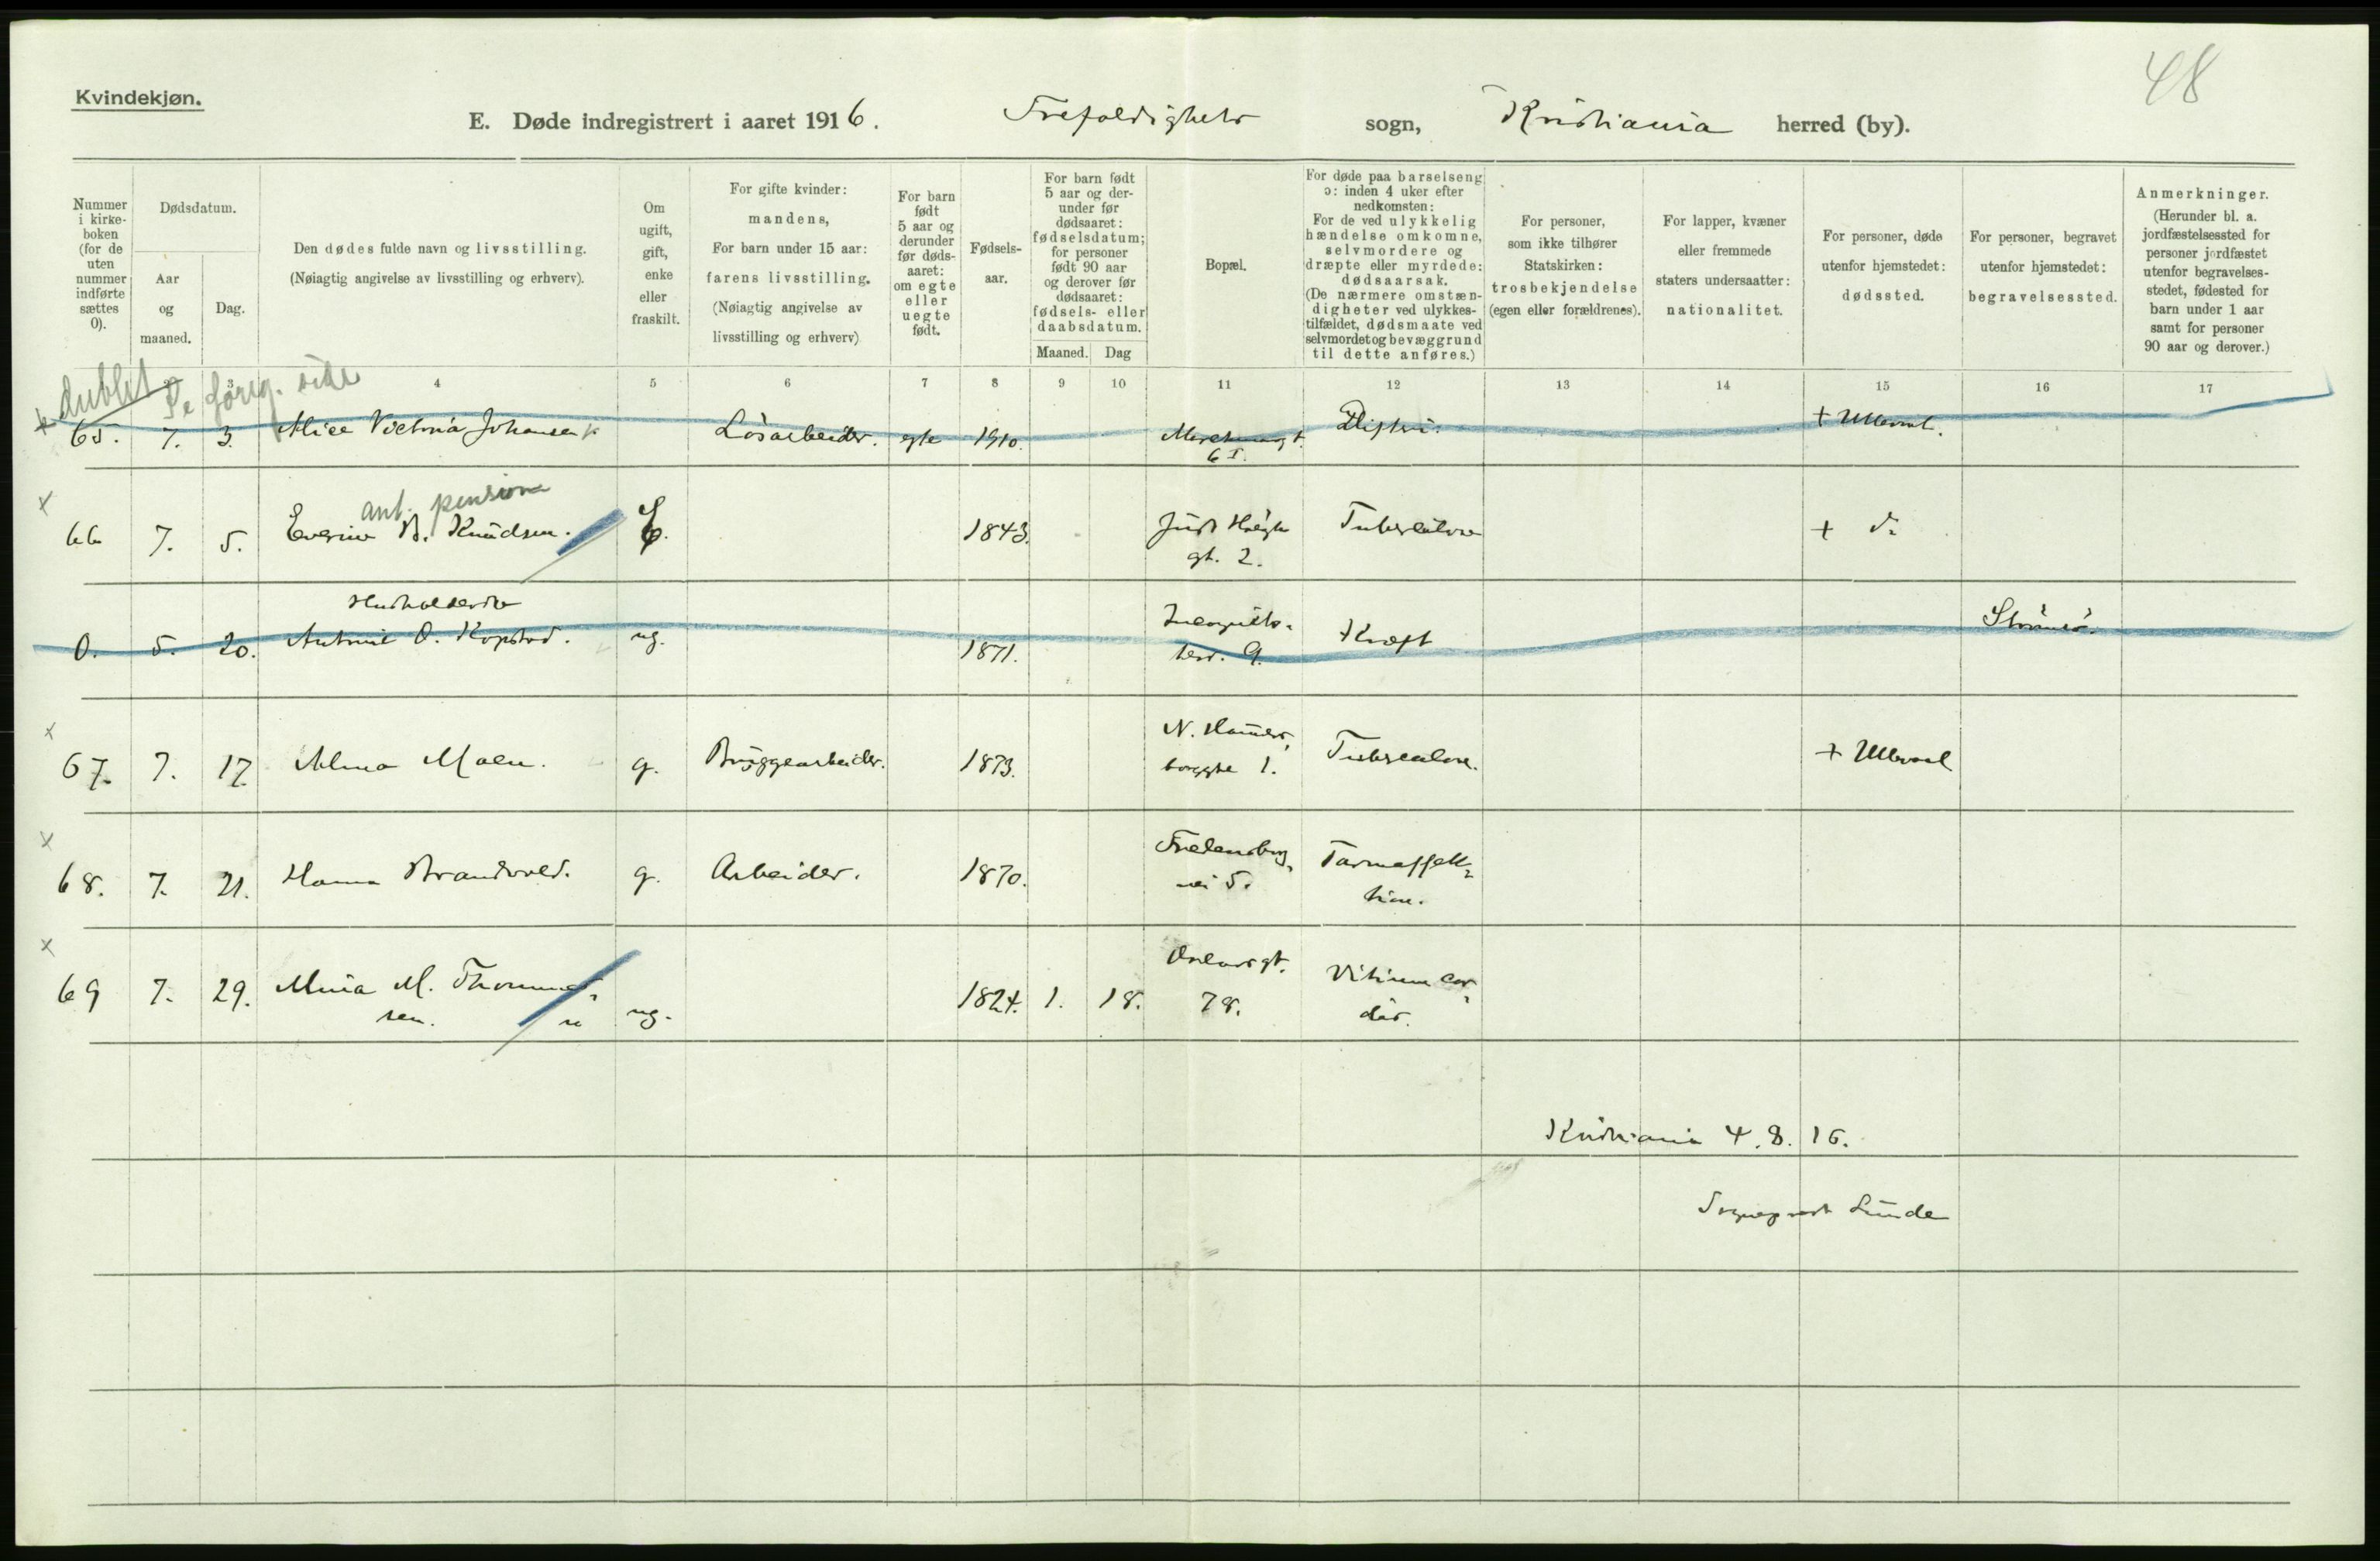 48
Kvindekjøn.
E. Døde indregistrert i aaret 1916. Trefoldighets sogn, Kristiania herred (by).
Nummer i kirke-boken (for de uten nummer indførte sættes 0).
Dødsdatum.
Aar og maaned.
Dag.
Den dødes fulde navn og livsstilling.
(Nøiagtig angivelse av livsstilling og erhverv).
Om ugift, gift, enke eller fraskilt.
For gifte kvinder:
mandens,
For barn under 15 aar:
farens livsstilling.
(Nøiagtig angivelse av
livsstilling og erhverv)
For barn født 5 aar og derunder før døds-aaret: om egte eller uegte født.
Fødsels-aar.
For barn født 5 aar og der-under før dødsaaret: fødselsdatum; for personer født 90 aar og derover før dødsaaret: fødsels- eller daabsdatum.
Maaned. Dag
Bopæl.
For døde paa barselseng
ɔ: inden 4 uker efter
nedkomsten:
For de ved ulykkelig
hændelse omkomne,
selvmordere og
dræpte eller myrdede:
dødsaarsak.
(De nærmere omstæn-
digheter ved ulykkes-
tilfældet, dødsmaate ved
selvmordet og bevæggrund
til dette anføres.)
For personer,
som ikke tilhører
Statskirken:
trosbekjendelse
(egen eller forældrenes).
For lapper, kvæner
eller fremmede
staters undersaatter:
nationalitet.
For personer, døde
utenfor hjemstedet:
dødssted.
For personer, begravet
utenfor hjemstedet:
begravelsessted.
Anmerkninger.
(Herunder bl. a.
jordfæstelsessted for
personer jordfæstet
utenfor begravelses-
stedet, fødested for
barn under 1 aar
samt for personer
90 aar og derover.)
3 4 5 6 7 8 9 10 11 12 13 14 15 16 17
dublet Se forrig. side
65. 7. 3. Alice Victoria Johansen Løsarbeider. egte 1910. 6 I. + Ulleval.
ant. pension
66 7. 5. B. Knudsen. E. 1843. Just Høeghs gt. 2. Tuberkulose + do
Husholderske
0. 5. 20. Antonie O. Kopstad. ug. 1871. Incognito- terr. 9. Kræft Strømsø.
67. 7. 17. Alma Moen. g. Bryggearbeider. 1873. N. Hammers- borggte 1. Tuberculose. + Ulleval
68. 7. 21. Hanna Brandvold. g. Arbeider. 1870. Fredensborg- vei 5. Tarmaffek- tion.
69 7. 29. Mina M. Thommes- sen. ug. 1824. 1. 18. 78. Vitium cor- dis.
Kristiania 4. 8. 16.
Sogneprest Lunde